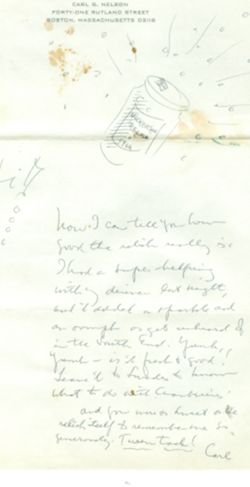 CARL G. NELSON
FORTY-ONE RUTLAND STREET
BOSTON, MASSACHUSETTS 02118
Now I can tell you how
good the relish really is
I had a super helping
with my dinner last night,
and it added a sparkle and
an oomph as yet unheard of
in the South End. Yumh,
yumh — is it fresh & good!
Leave it to to know
what to do with Cranberries
and you were as
relish itself to remember me so
generously.
Carl